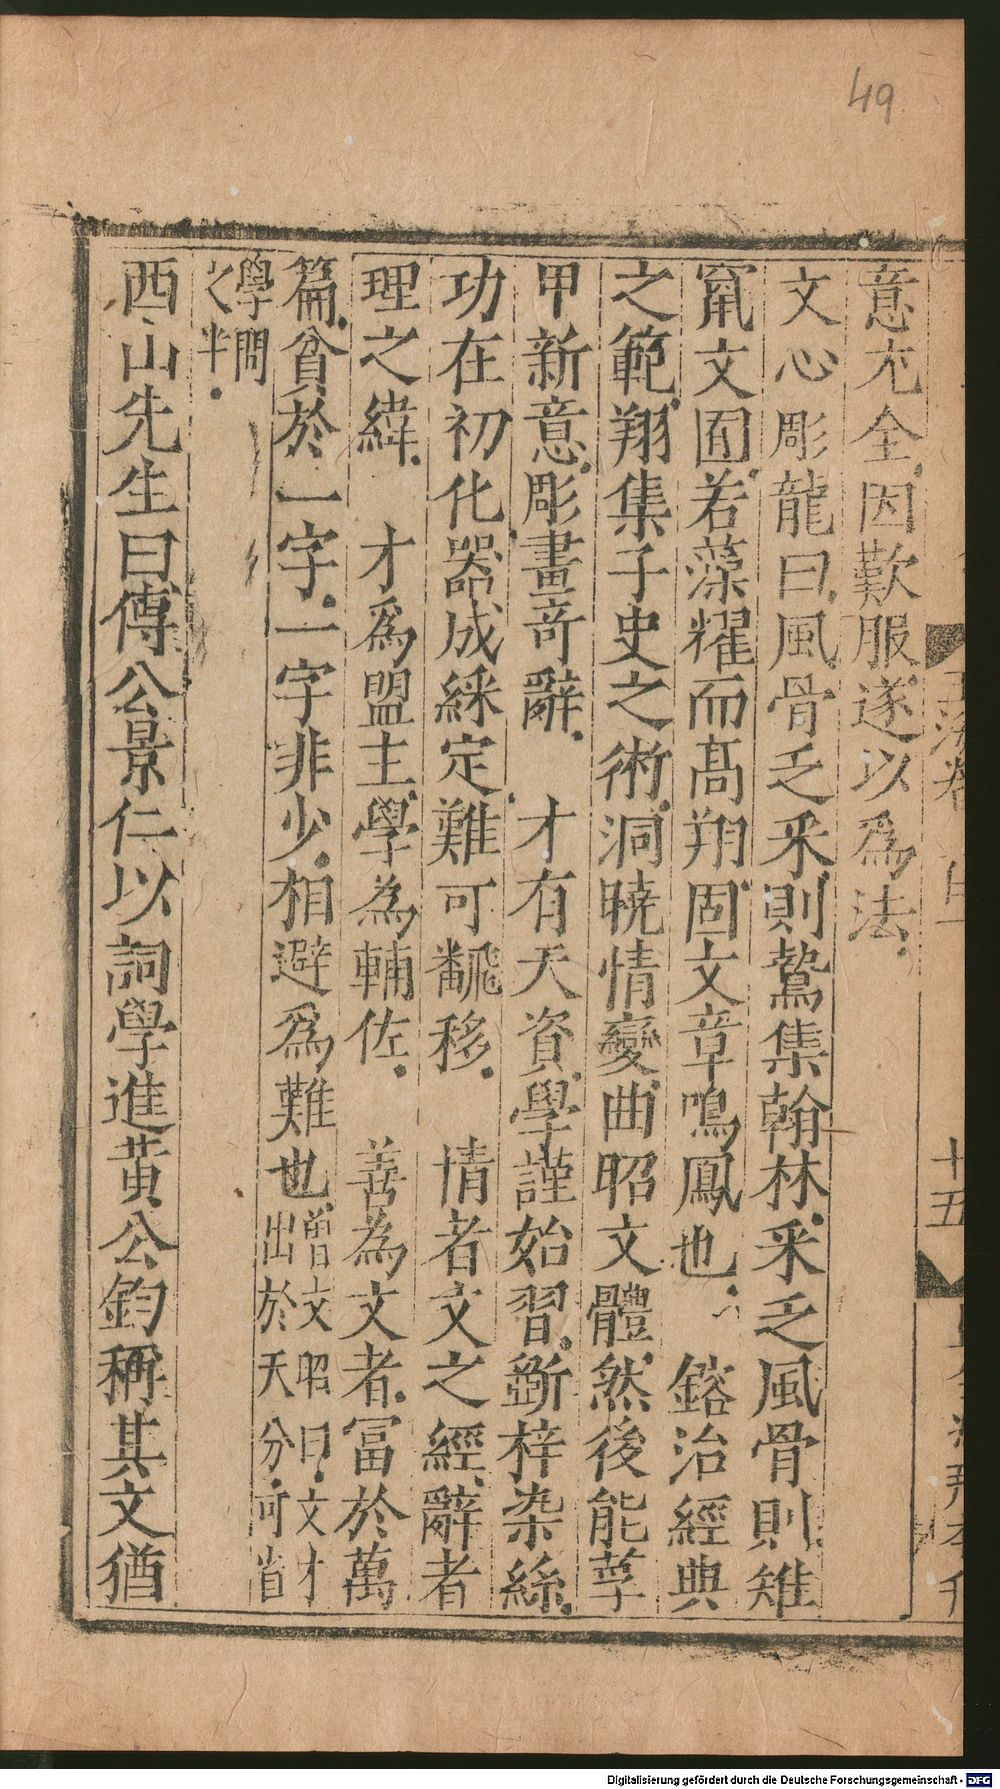 49
意尤全因歎服遂以爲法
文心彫龍曰風骨乏釆則鷙集翰林釆乏風骨則雉
竄文囿若藻耀而髙翔固文章鳴鳳也　鎔冶經典
之範翔集子史之術洞曉情變曲昭文體然後能莩
甲新意彫畫竒辭　才有天資學謹始習斲梓染絲
功在初化器成綵定難可飜移　情者文之經辭者
理之緯　才爲盟主學為輔佐　善為文者冨於萬
篇貧於一字一字非少相避爲難也
曾文昭曰文才
出於天分可省
學問
之半
西山先生曰傅公景仁以詞學進黃公鈞稱其文猶
十五
Digitalisierung gefördert durch die Deutsche Forschungsgemeinschaft - DFG